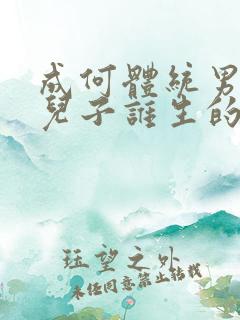 成何體統男
兒子誰生的
珏望之外
未经同意禁止转载